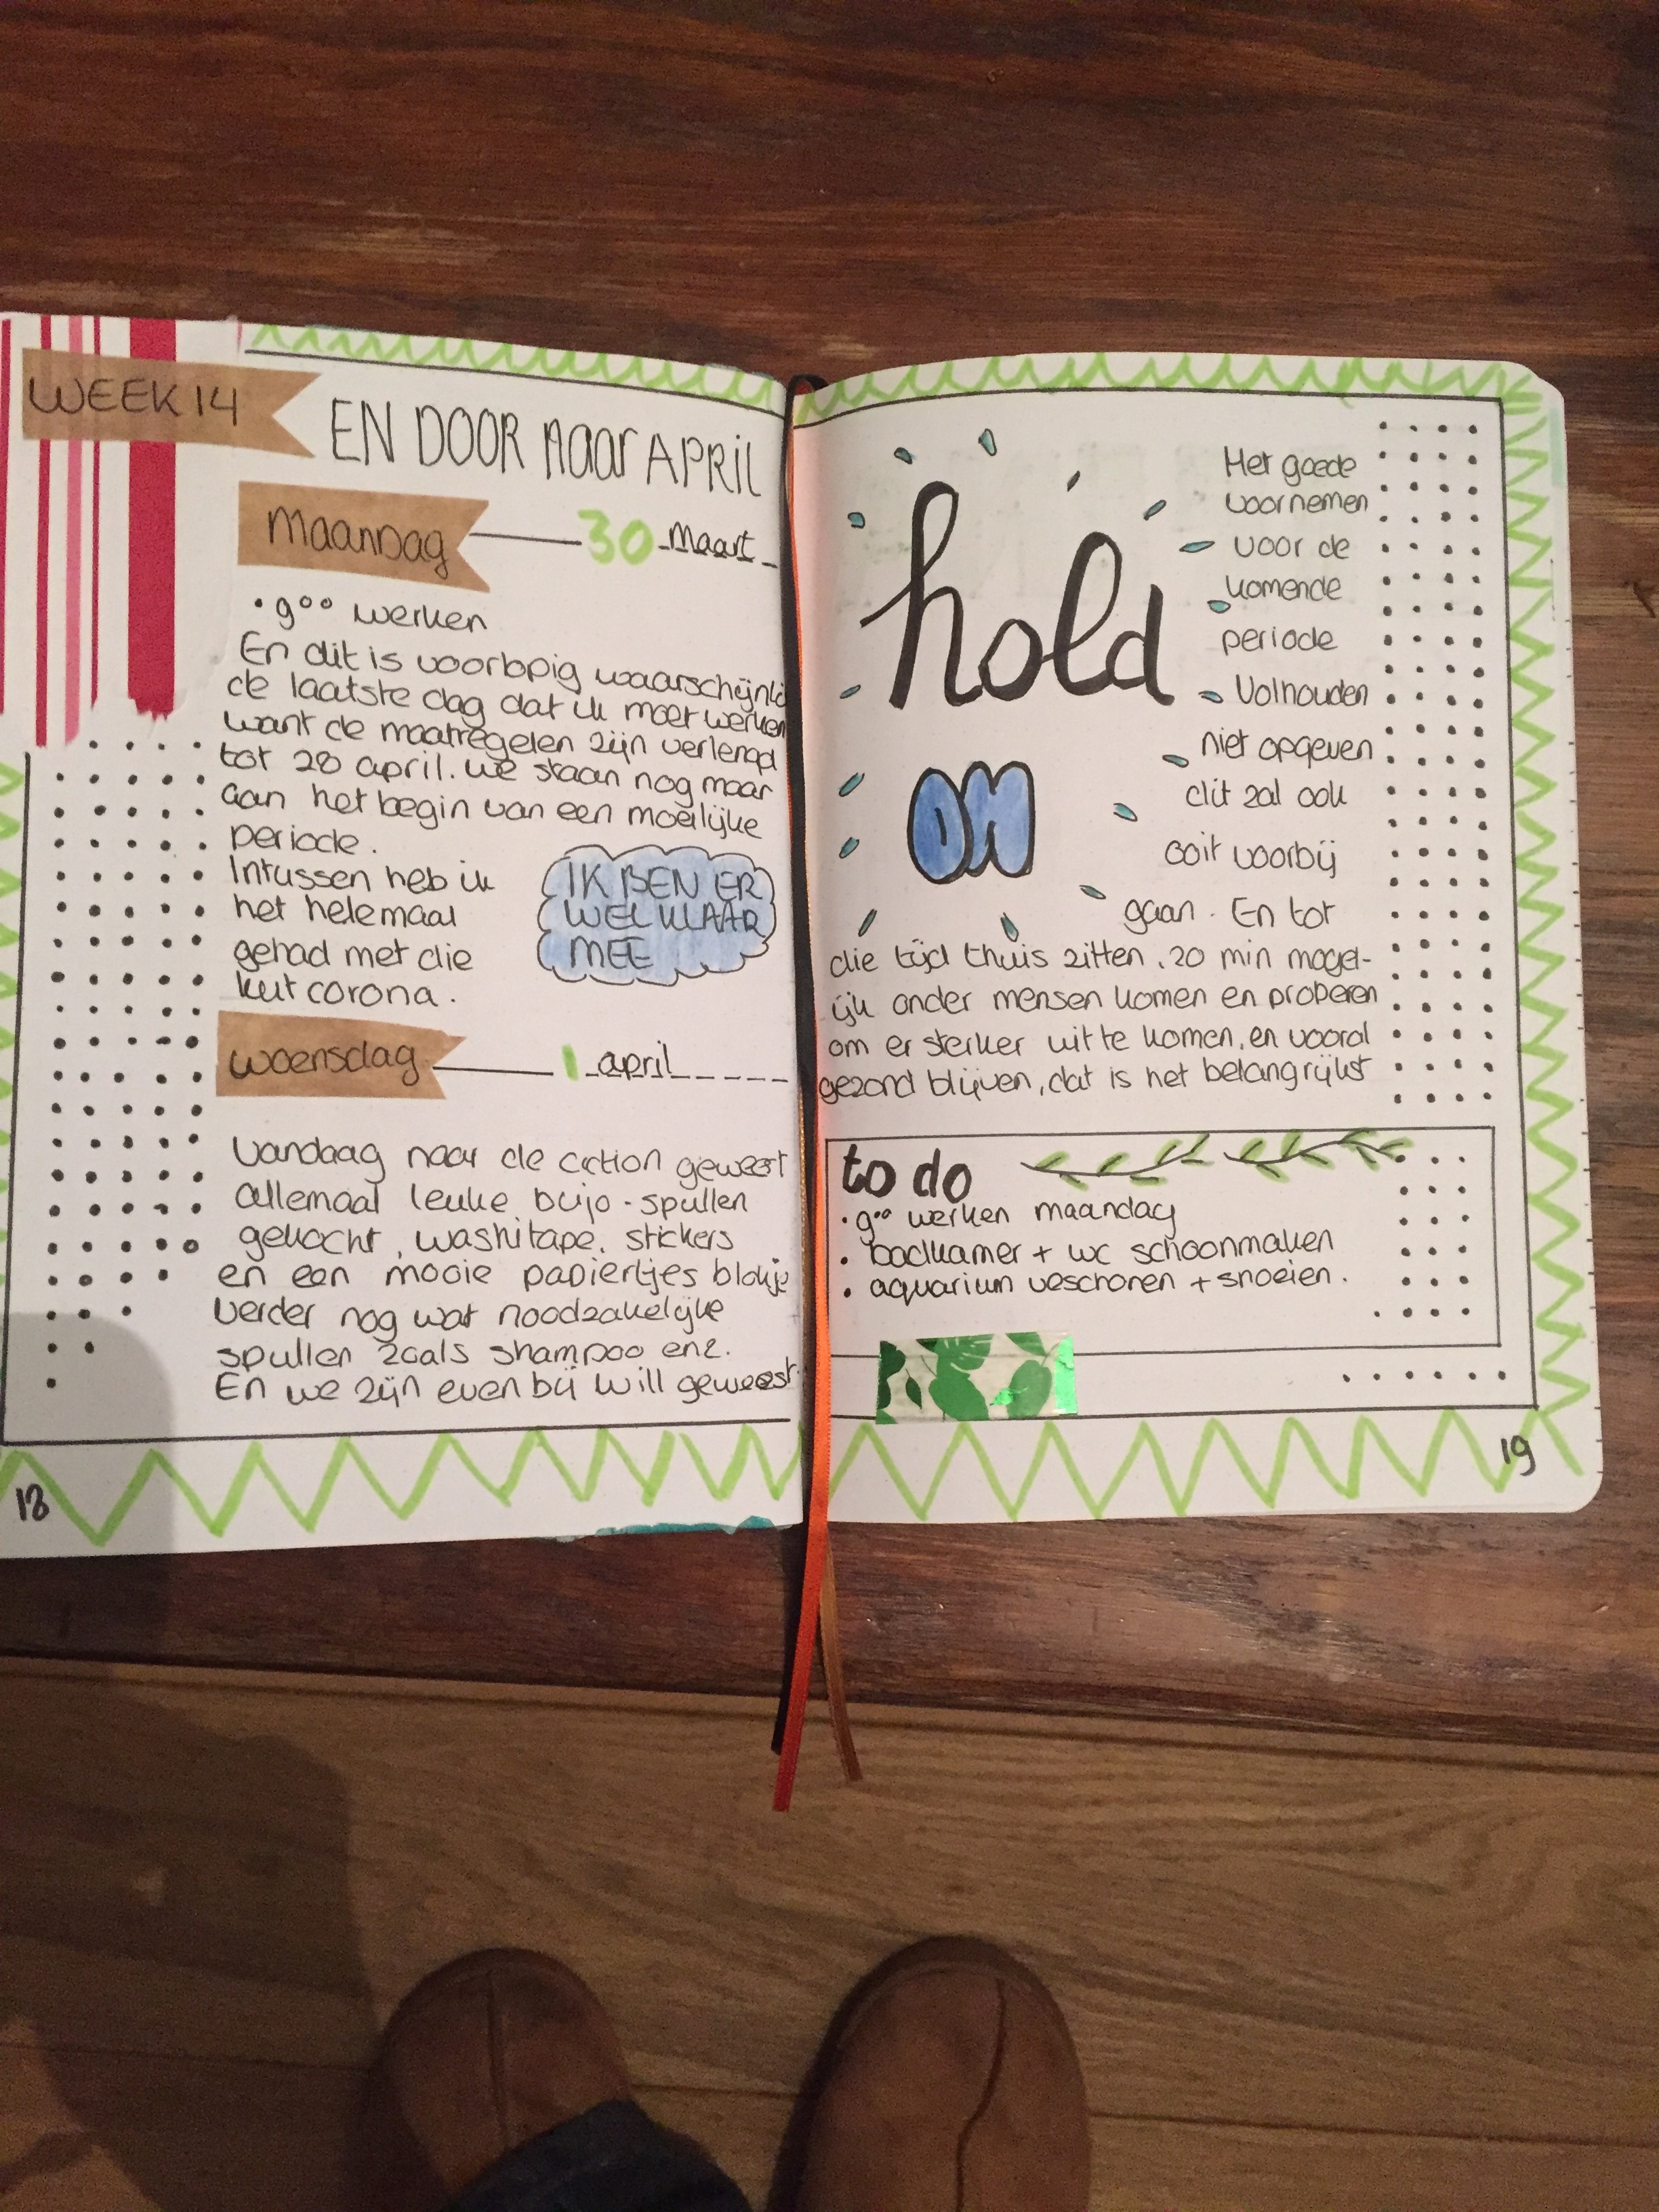 WEEK 14
EN DOOR naar APRIL
Maandag 30 Maart
• 9°° werken
En dit is voorlopig waarschijnlij
de laatste dag dat ik moet werken
want de maatregelen zijn verlengd
tot 28 april. we staan nog maar
aan het begin van een moeilijke
periode.
Intussen heb ik
het helemaal
gehad met die
kut corona.
IK BEN ER
WEL KLAAR
MEE
woensdag 1 april
Vandaag naar de action geweest
allemaal leuke bujo-spullen
gekocht, washitape, stickers
en een mooie papiertjes blokje
Verder nog wat noodzakelijke
spullen zoals shampoo enz.
En we zijn even bij Will geweest
18
hold
ON
Het goede
voornemen
voor de
komende
periode
Volhouden
niet opgeven
dit zal ook
ooit voorbij
gaan. En tot
die tijd thuis zitten, zo min mogel-
ijk onder mensen komen en proberen
om er sterker uit te komen, en vooral
gezond blijven, dat is het belangrijkst
to do
• 9°° werken maandag
• badkamer + wc schoonmaken
• aquarium veschonen + snoeien.
19